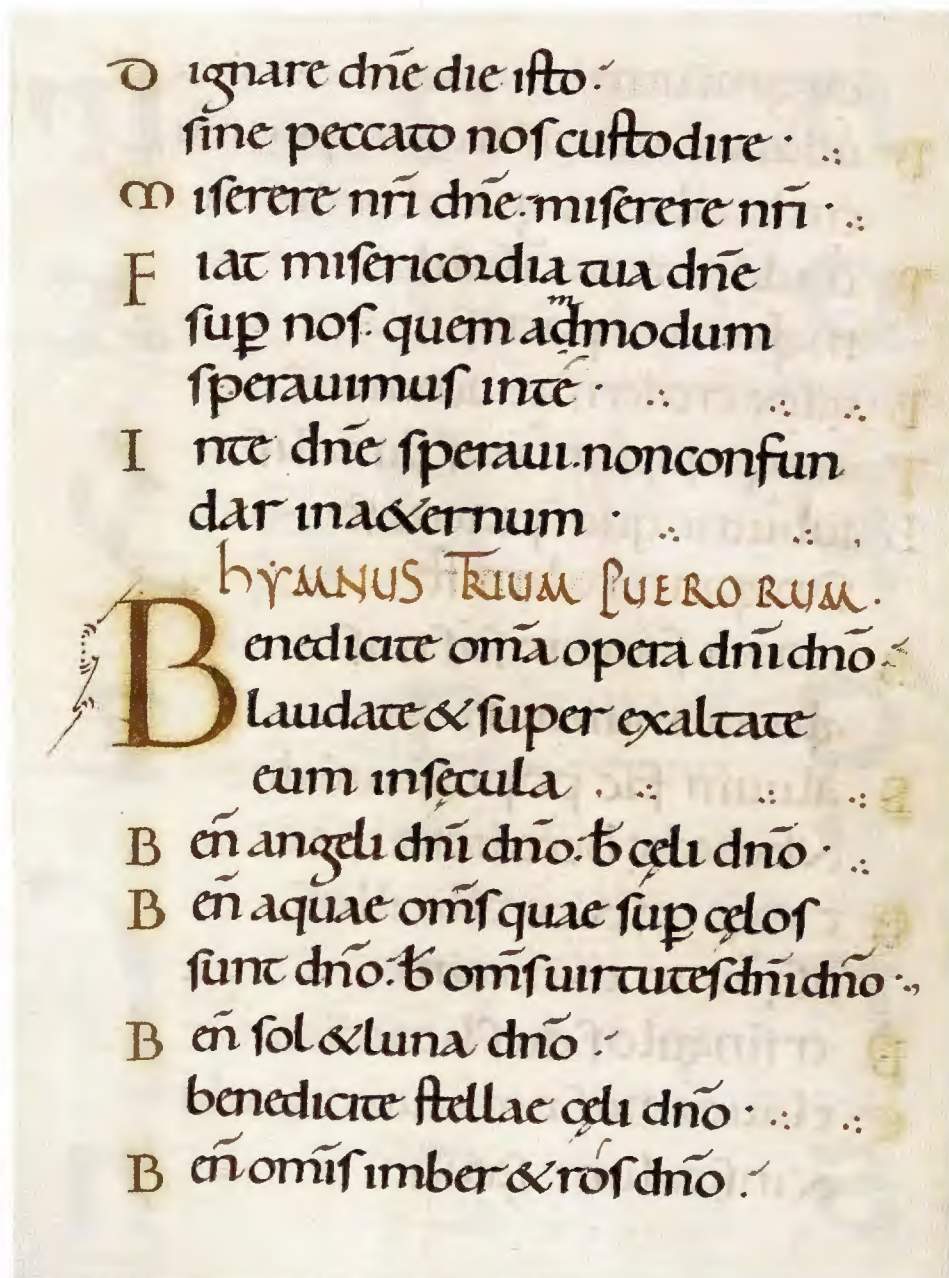 Dignare dñe die isto.
sine peccato nos custodire.
Miserere nr̄i dñe. miserere nr̄i.
Fiat misericordia tua dñe
sup̱ nos. quem admmodum
sperauimus inte.
Inte dñe speraui. nonconfun
dar ina&ernum.
hYMNUS TRIUM PUERORUM.
Benedicite om̄a opera dñi dño.
laudate & super exaltate
eum insęcula.
Beñ angeli dñi dño. ƀ cęli dño.
Beñ aquae om̄s quae sup̱ cęlos
sunt dño. ƀ om̄s uirtutes dñi dño.
Beñ sol & luna dño.
benedicite stellae cęli dño.
Beñ omīs imber & ros dño.